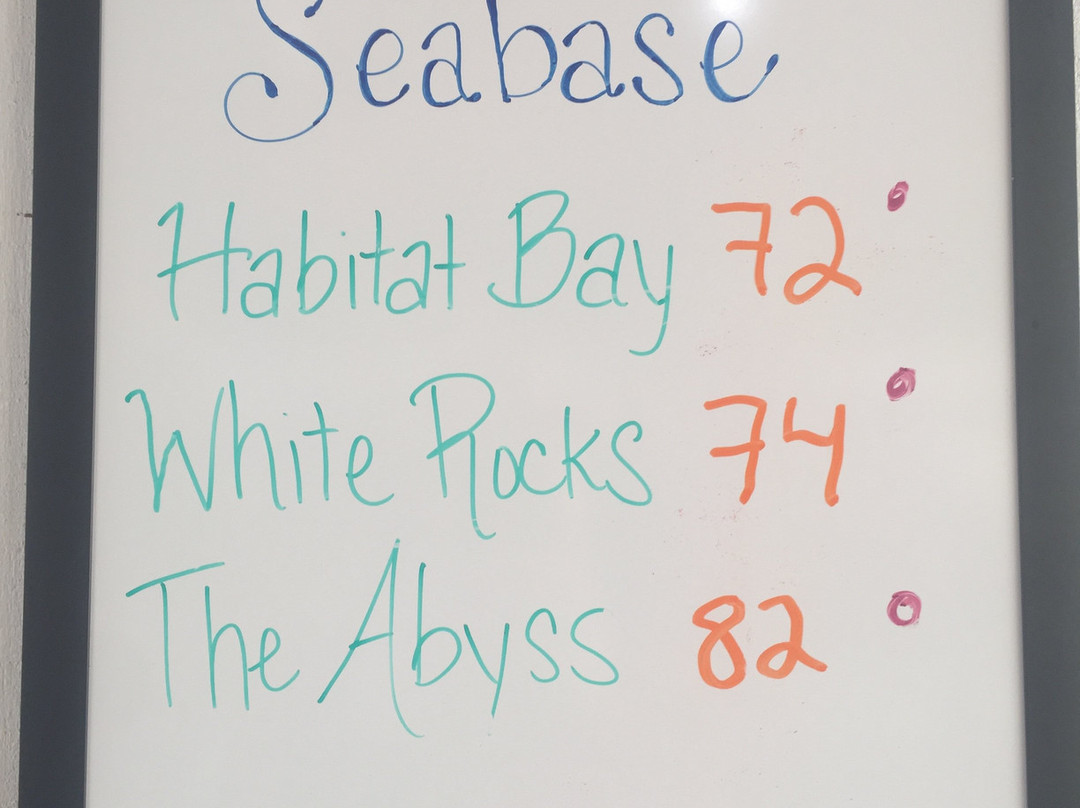 Seabase
Habitat Bay 72°
White Rocks 74°
The Abyss 82°